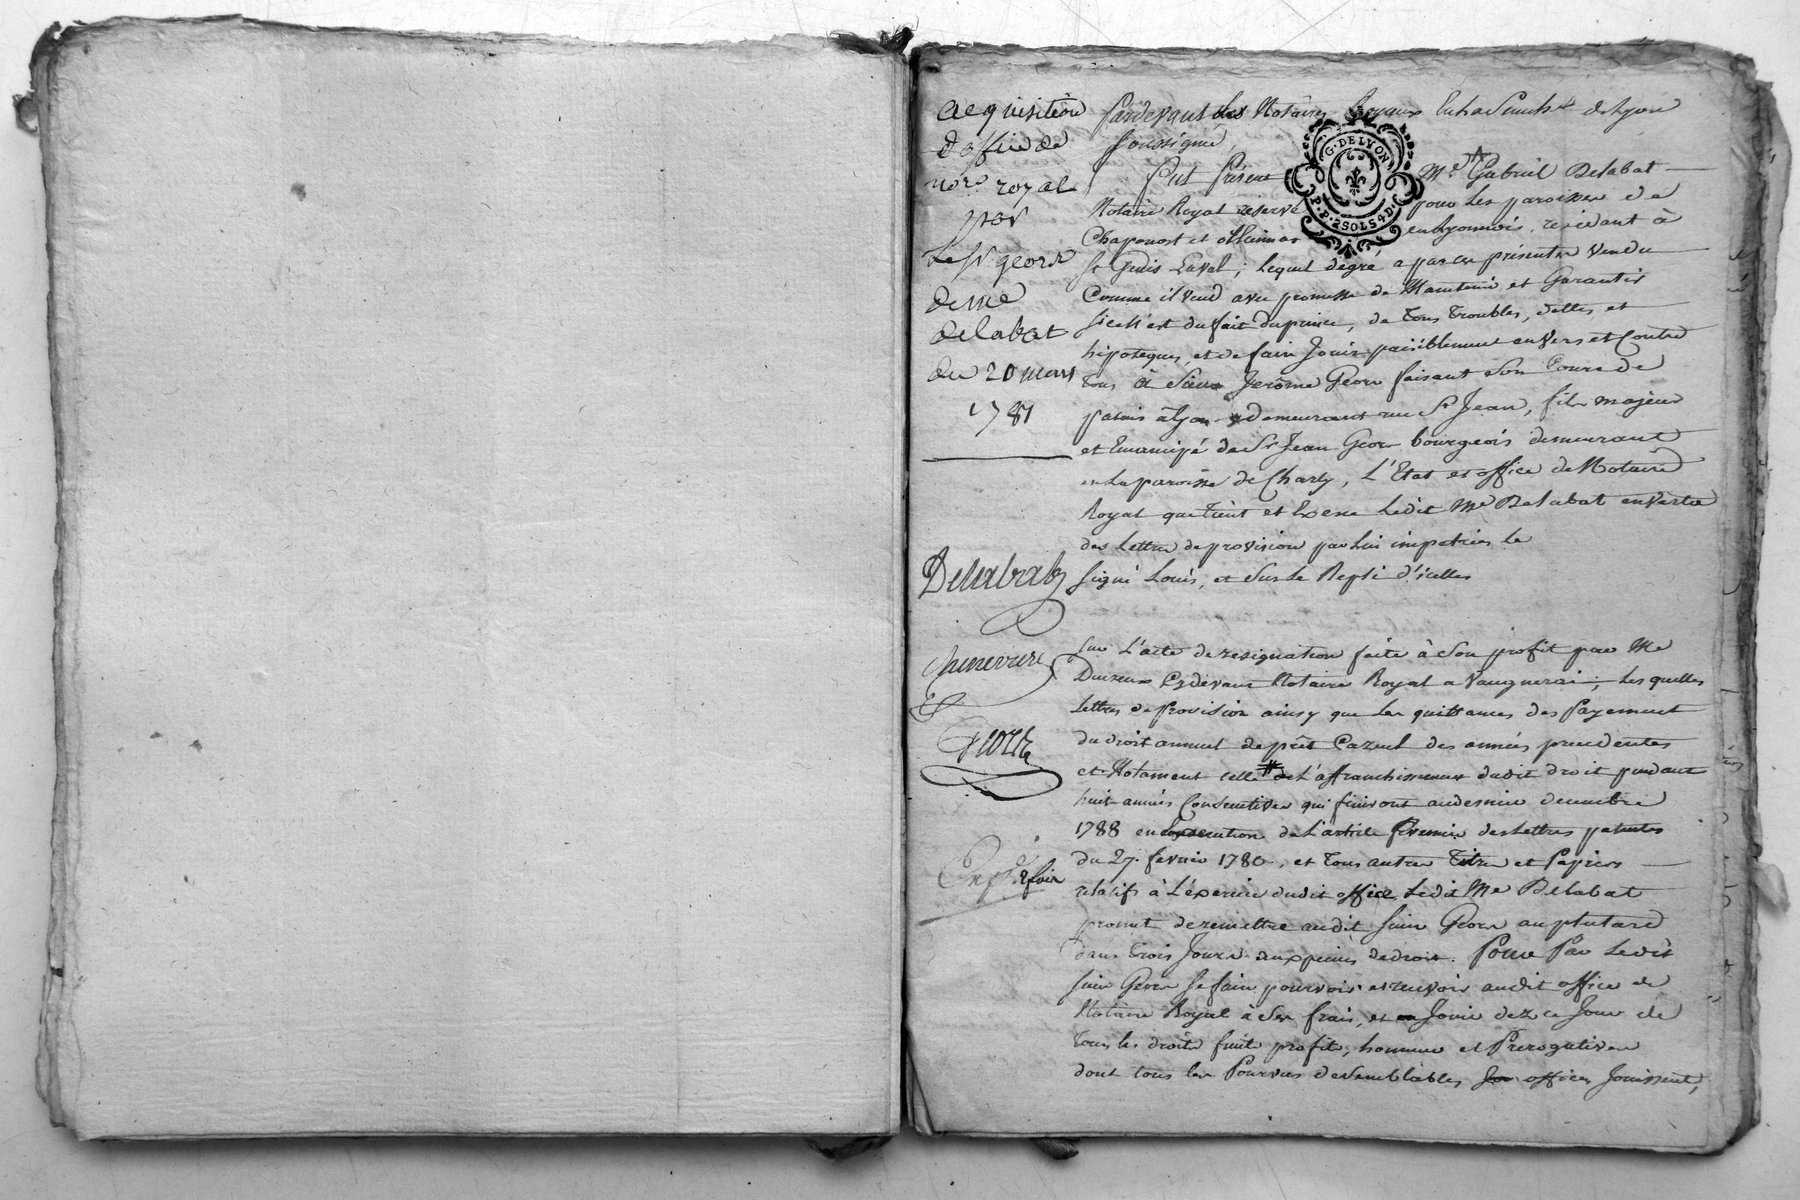 acquisition
d'office de
nore royal
par
le sr georz
de me
delabat
du 20 mars
1781
Delabat
Cheneviere
Georz
Expd. 2 fois
Pardevant les Notaires Royaux en la Senéchée de Lyon
soussignés
G. DE LYON
P.P. 2 SOLS 4 D.
Fut présent Me. Gabriel Delabat
Notaire Royal réservé pour les paroisses de
Chaponost et ollainnas en Lyonnois, résidant à
St Genis Laval; lequel dégré a par ces présentes vendu
Comme il vend avec promesse de Maintenir et Garantir
si ce n'est du fait du prince, de tous troubles, dettes et
hipoteques, et de faire Jouir paisiblement envers et Contre
tous à Sieur Jerôme Georz faisant Son Cours de
palais à Lyon y demeurant rue St Jean, fils majeur
et Emancipé de Sr Jean Georz bourgeois demeurant
en la paroisse de Charly, L'Etat et office de Notaire
Royal que tient et Exerce Ledit Me Delabat en vertu
des Lettres de provision par Lui impetrées le
signé Louis, et Sur Le Repli d'icelles
sur L'acte de resignation faite à Son profit par Me
Cy devant Notaire Royal a Vaugnerai, Les quelles
Lettres de Provision ainsy que les quittances des Payement
du droit annuel de prêt Cazuel des années precedentes
et Notament celle # de L'affranchissement dudit droit pendant
huit années Consecutives qui finiront au dernier decembre
1788 en Execution de L'article Premier des Lettres patentes
du 27. fevrier 1780, et tous autres Titres et Papiers
relatifs à L'exercice dudit office Ledit Me Delabat
promet de remettre audit sieur Georz au plutard
dans trois Jours aux peines de droit. Pour Par Ledit
sieur Georz se faire pourvoir et recevoir audit office de
Notaire Royal à Ses frais, et Jouir dez ce Jour de
tous les droits fruits profits, honneurs et Prerogatives
dont tous les Pourvus de Semblables offices Jouissent,